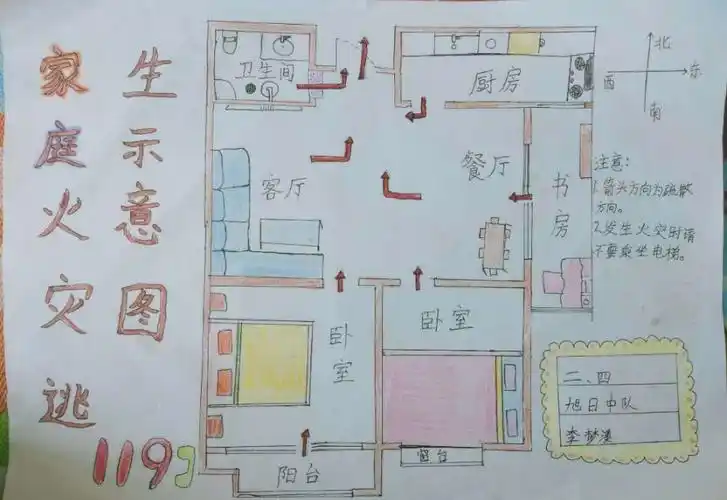 家庭火灾逃
生示意图
119
卫生间
厨房
客厅
餐厅
书房
卧室
卧室
阳台
窗台
北
西
东
南
注意：
1.箭头方向为疏散
方向。
2.发生火灾时请
不要乘坐电梯。
二、四
旭日中队
李梦溪